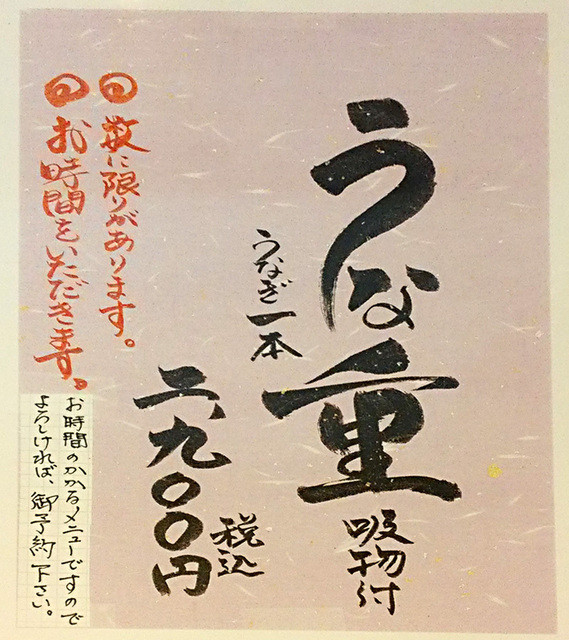 うな重
吸物付
うなぎ一本
二、九〇〇円
税込
数に限りがあります。
お時間をいただきます。
お時間のかかるメニューですので
よろしければ、御予約下さい。